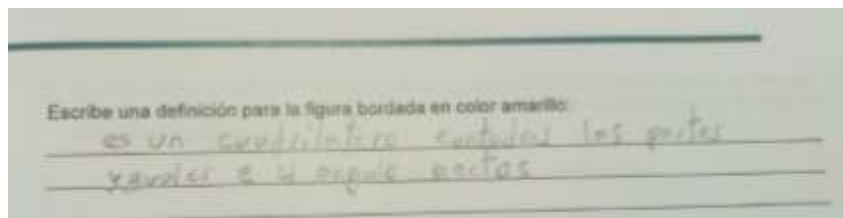 Escribe una definición para la figura bordada en color amarillo:
es un cuadrilatero con todas las partes
iguales e angulo rectos